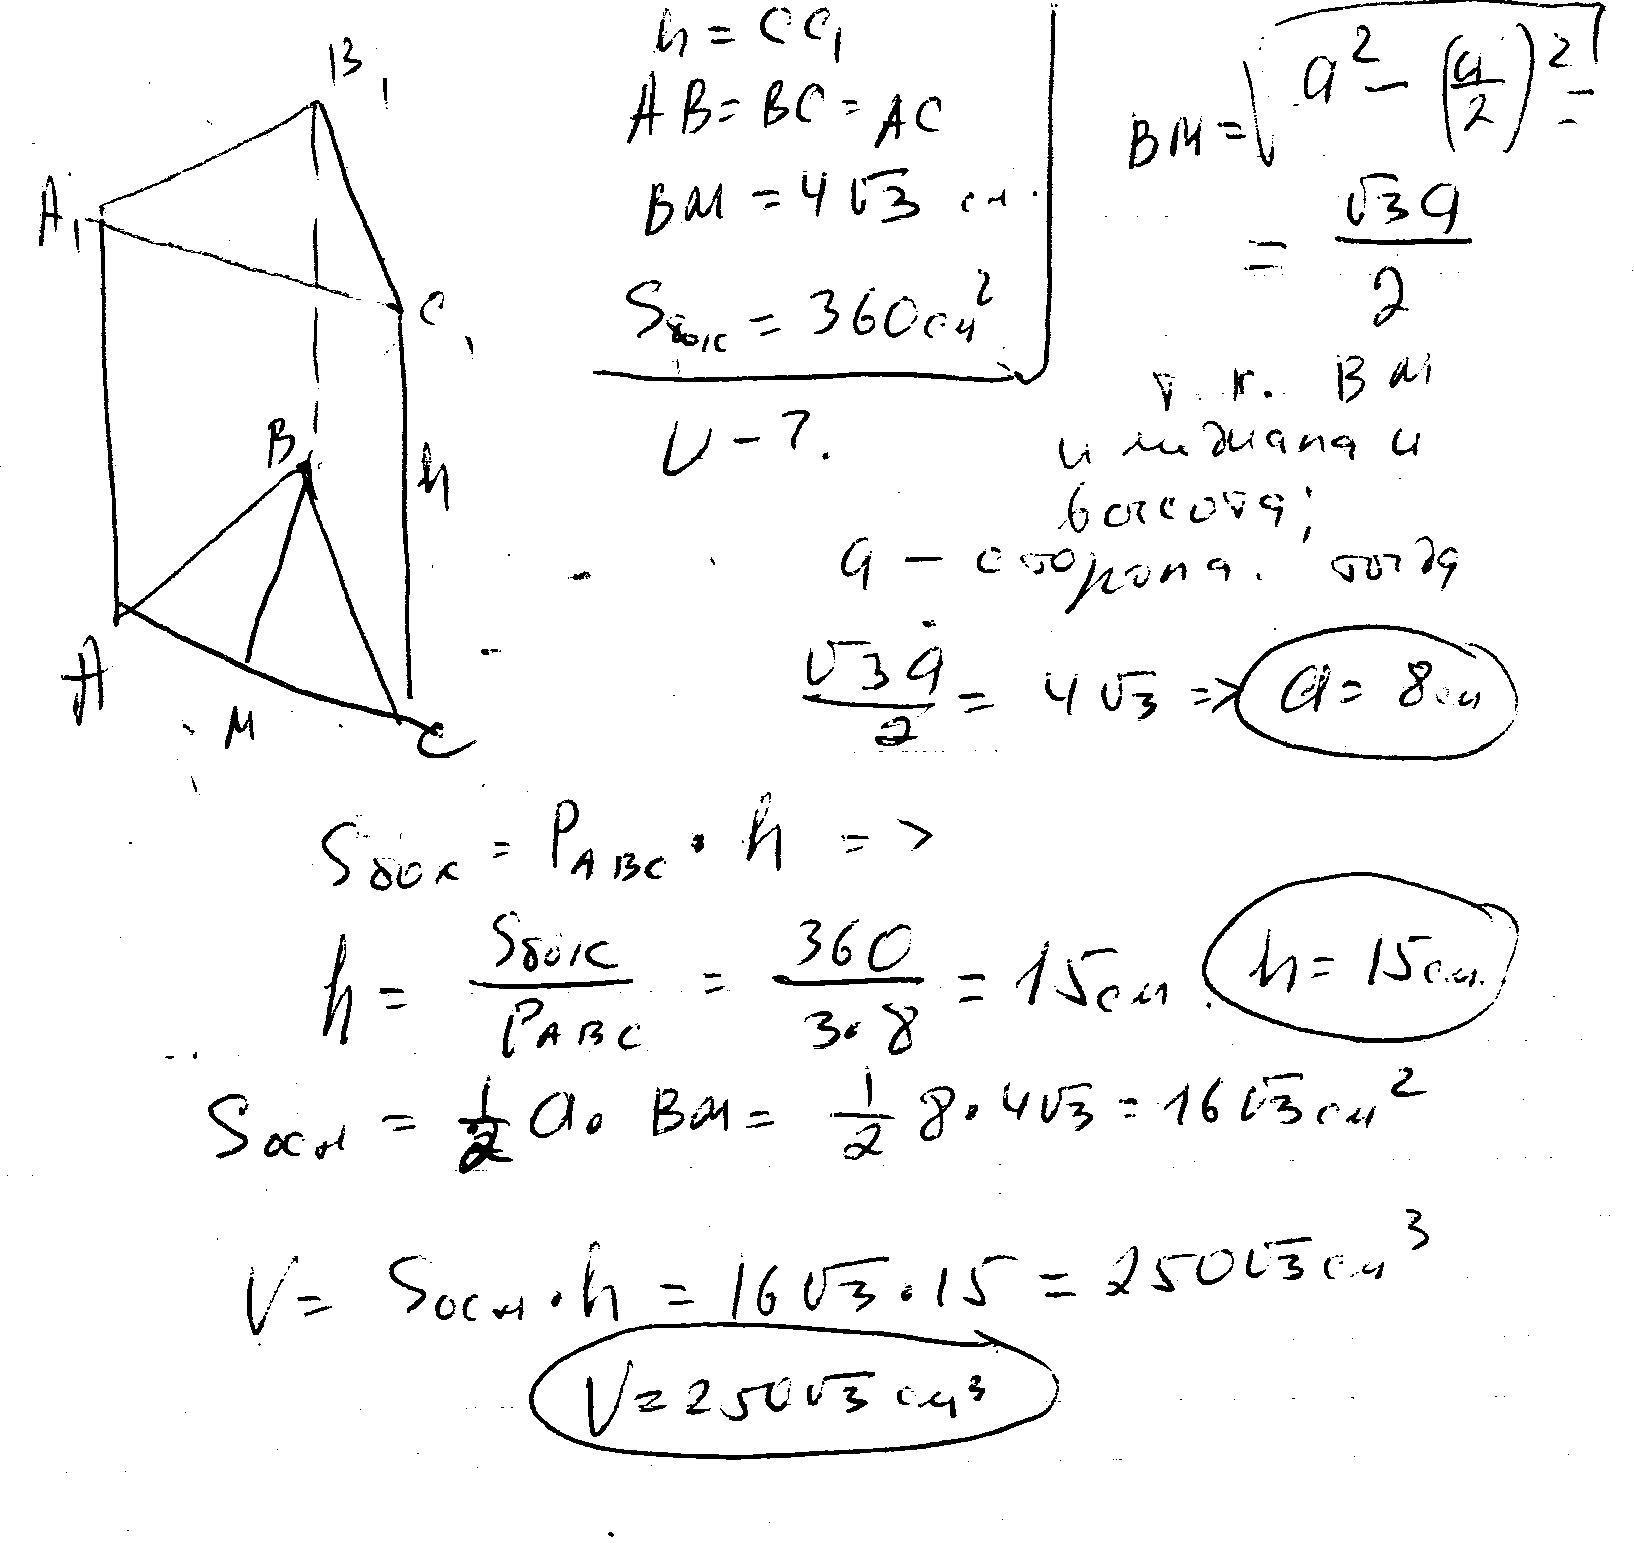 B₁
A₁
C₁
B
h
A
M
C
h = CC₁
AB = BC = AC
BM = 4√3 см.
Sбок = 360 см²
V - ?.
BM = √(a² - (a/2)²) =
= √3a/2
т.к. BM
и медиана и
высота;
a - сторона. тогда
√3a/2 = 4√3 => a = 8 см
Sбок = P_ABC · h =>
h = Sбок/P_ABC = 360/3·8 = 15 см. h = 15 см.
Sосн = 1/2 a · BM = 1/2 8 · 4√3 = 16√3 см²
V = Sосн · h = 16√3 · 15 = 250√3 см³
V = 250√3 см³